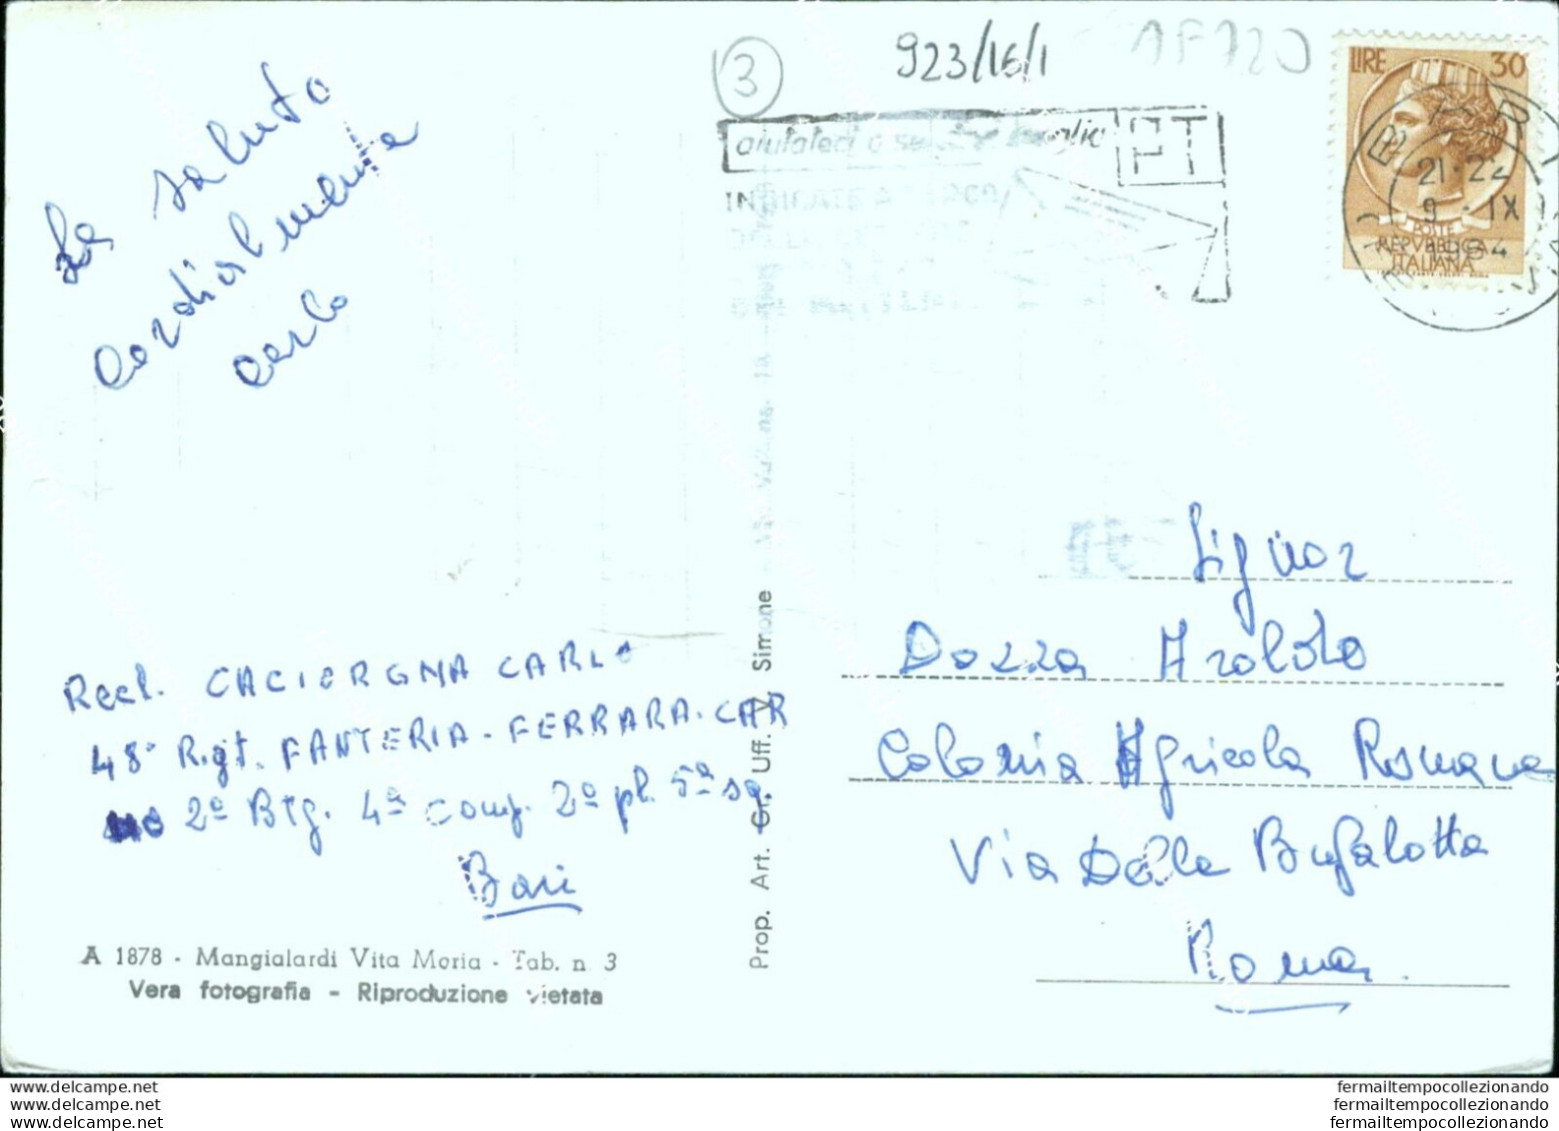 3
923/16/1
1F120
aiutateci a se meglio PT
LIRE 30
BARI
21-22
9 · IX
1964
POSTE
REPVBBLICA
ITALIANA
La saluto
cordialmente
carlo
Signor
Dozza Aroldo
Colonia Agricola Romana
Via Della Bufalotta
Roma.
Recl. CACIORGNA CARLO
48° Rigt. FANTERIA - FERRARA - CAR
2° BTG. 4ª comp. 2° pl. 5ª sq
Bari
A 1878 - Mangialardi Vita Maria - Tab. n. 3
Vera fotografia - Riproduzione vietata
Prop. Art. Gr. Uff. V. Simone
www.delcampe.net
www.delcampe.net
www.delcampe.net
fermailtempocollezionando
fermailtempocollezionando
fermailtempocollezionando